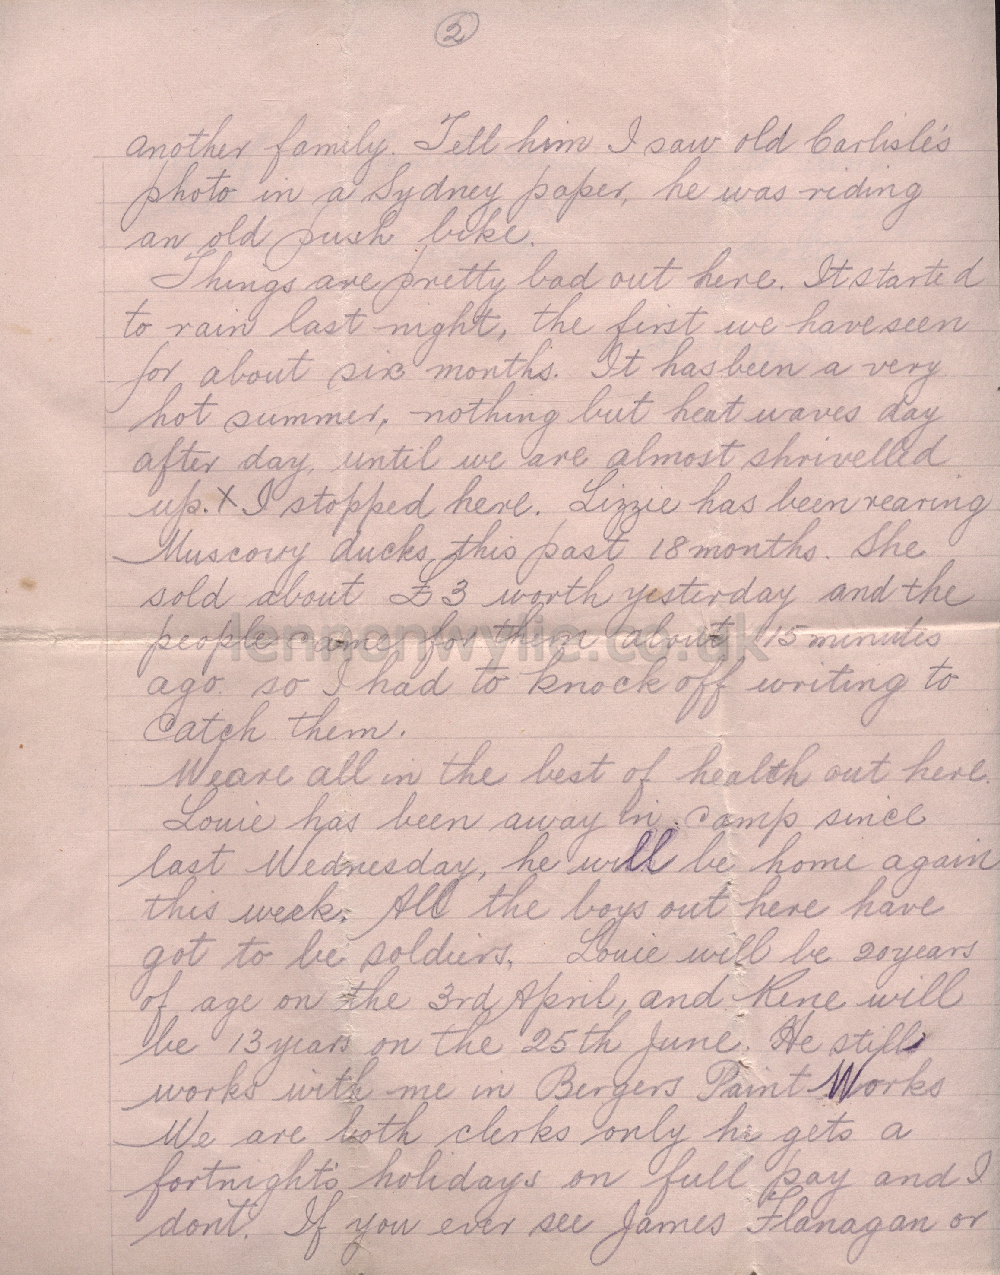 2
another family. Tell him I saw old Carlisle's
photo in a Sydney paper, he was riding
an old push bike.
Things are pretty bad out here. It started
to rain last night, the first we have seen
for about six months. It has been a very
hot summer, nothing but heat waves day
after day, until we are almost shrivelled
up. X I stopped here. Lizzie has been rearing
Muscovy ducks, this past 18 months. She
sold about £3 worth yesterday and the
people came for them about 15 minutes
lennonwylie.co.uk
ago so I had to knock off writing to
catch them.
We are all in the best of health out here.
Louie has been away in camp since
last Wednesday, he will be home again
this week. All the boys out here have
got to be soldiers. Louie will be 20 years
of age on the 3rd April, and Rene will
be 13 years on the 25th June. He still
works with me in Bergers Paint Works
We are both clerks only he gets a
fortnight's holidays on full pay and I
dont. If you ever see James Flanagan or